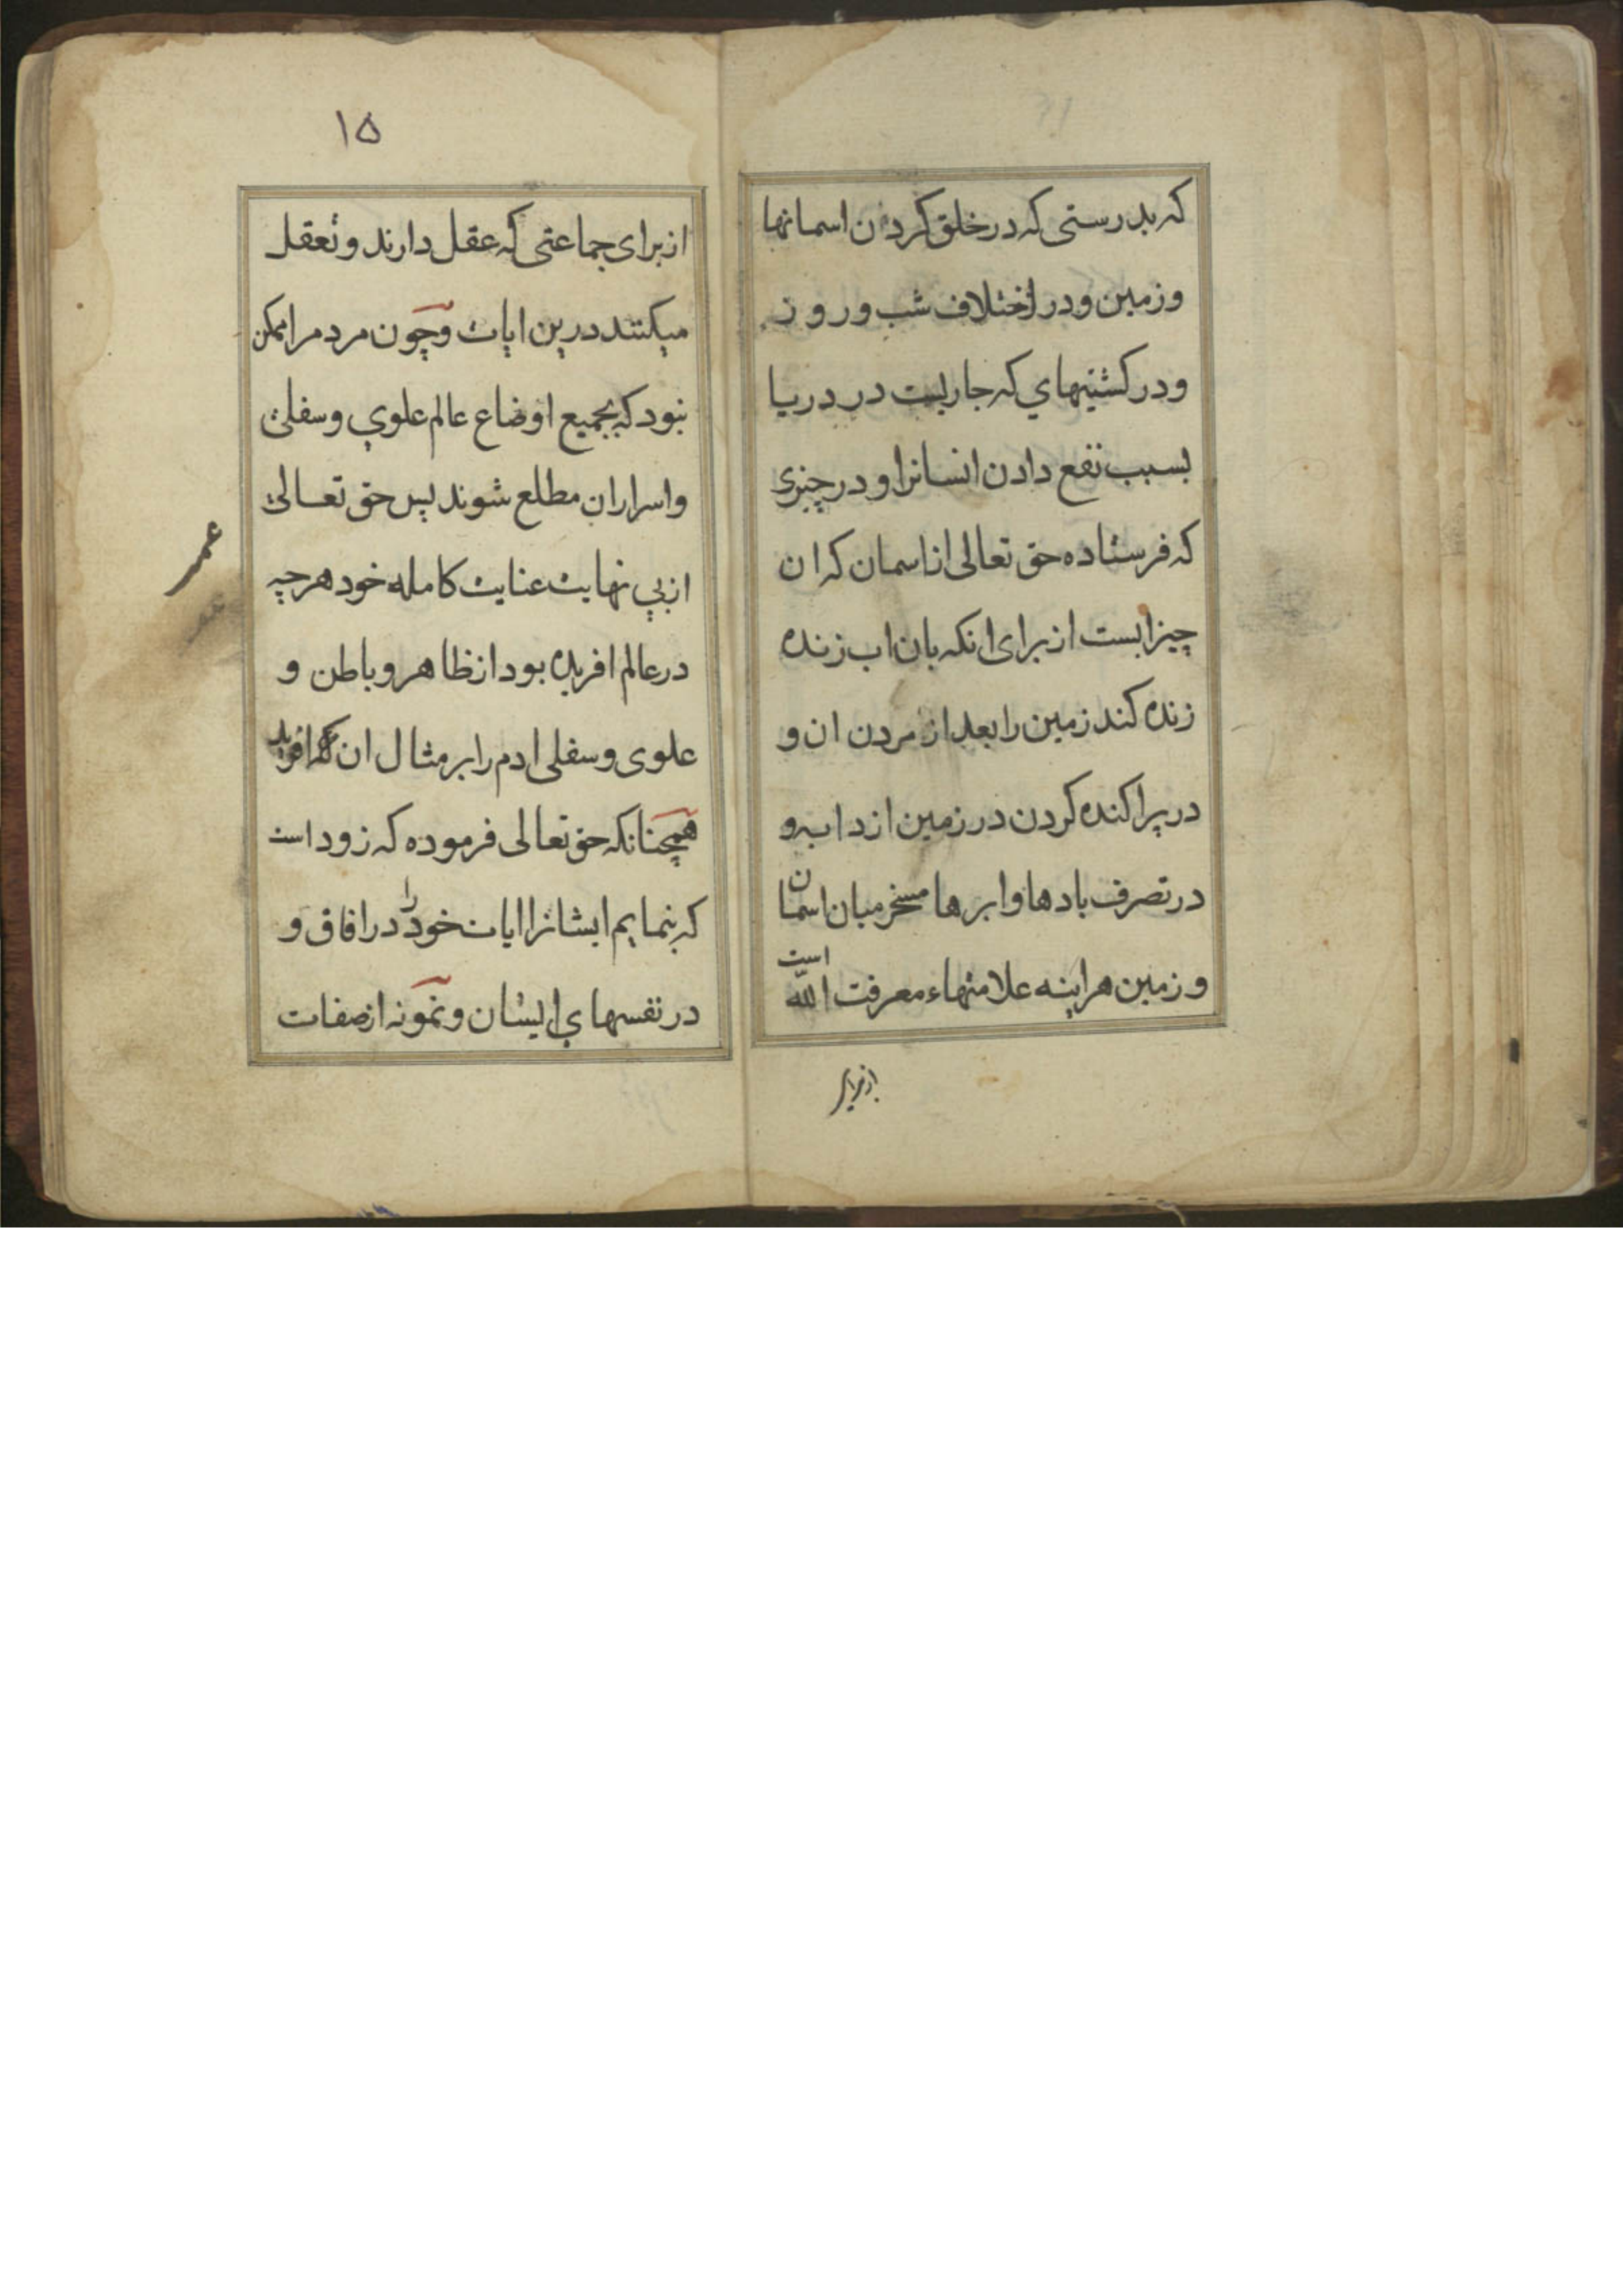 که بدرستی که در خلق کردن اسمانها
و زمین و در اختلاف شب و روز
و در کشتیهای که جاریست در دریا
بسبب نفع دادن انسانرا و در چیزی
که فرستاده حق تعالی از اسمان که ان
چیز ابست از برای انکه بان اب زنده
زنده کند زمین را بعد از مردن ان و
در پراکنده کردن در زمین از دابه و
در تصرف بادها و ابرها مسخر میان اسمان
و زمین هراینه علامتهاء معرفت الله است
از برای
۱۵
از برای جماعتی که عقل دارند و تعقل
میکنند درین ایات و چون مردم را ممکن
نبود که بجمیع اوضاع عالم علوی و سفلی
و اسرار ان مطلع شوند پس حق تعالی
از بی نهایت عنایت کامله خود هر چه
در عالم افریده بود از ظاهر و باطن و
علوی و سفلی ادم را بر مثال ان افرید
همچنانکه حق تعالی فرموده که زود است
که بنمایم ایشانرا ایات خود را در افاق و
در نفسهای ایشان و نمونه از صفات
عمر